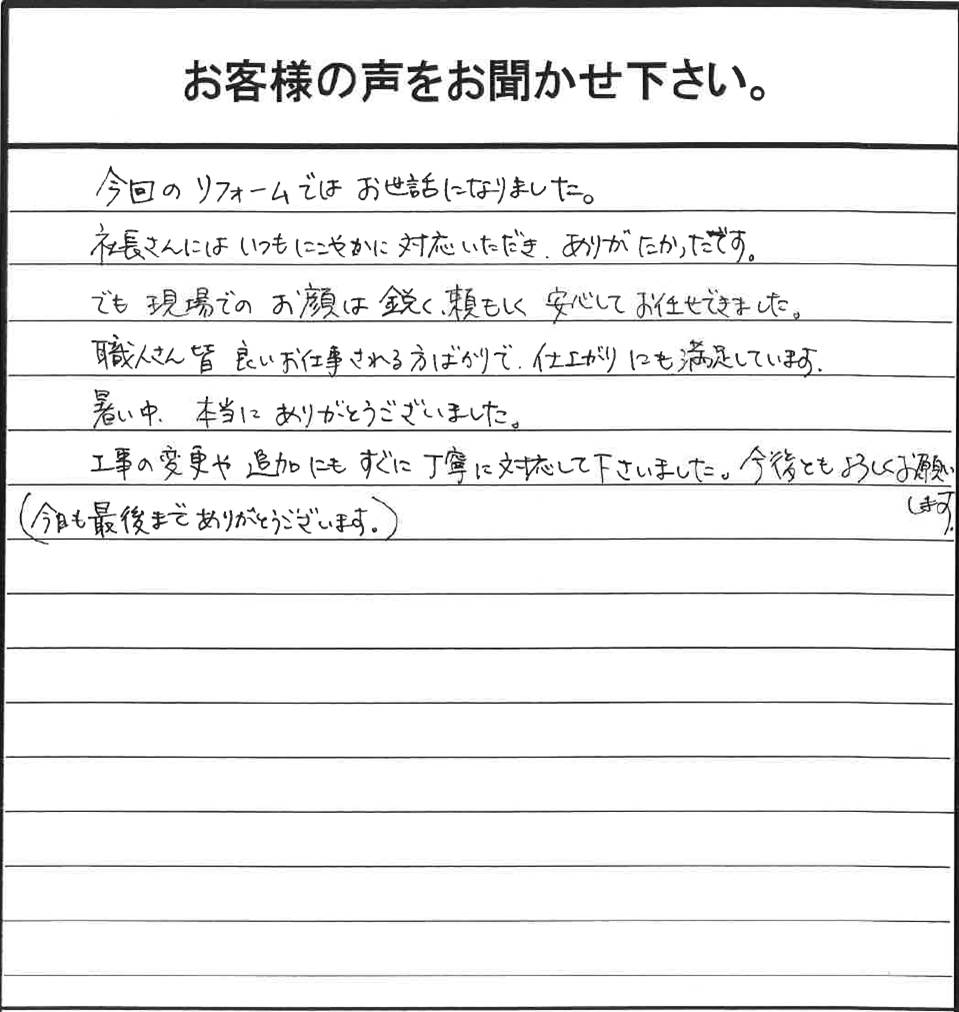 お客様の声をお聞かせ下さい。
今回のリフォームではお世話になりました。
社長さんにはいつもにこやかに対応いただき、ありがたかったです。
でも現場でのお顔は鋭く、頼もしく安心してお任せできました。
職人さん皆良いお仕事される方ばかりで、仕上がりにも満足しています。
暑い中、本当にありがとうございました。
工事の変更や追加にもすぐに丁寧に対応して下さいました。今後ともよろしくお願い
します。
(今日も最後までありがとうございます。)